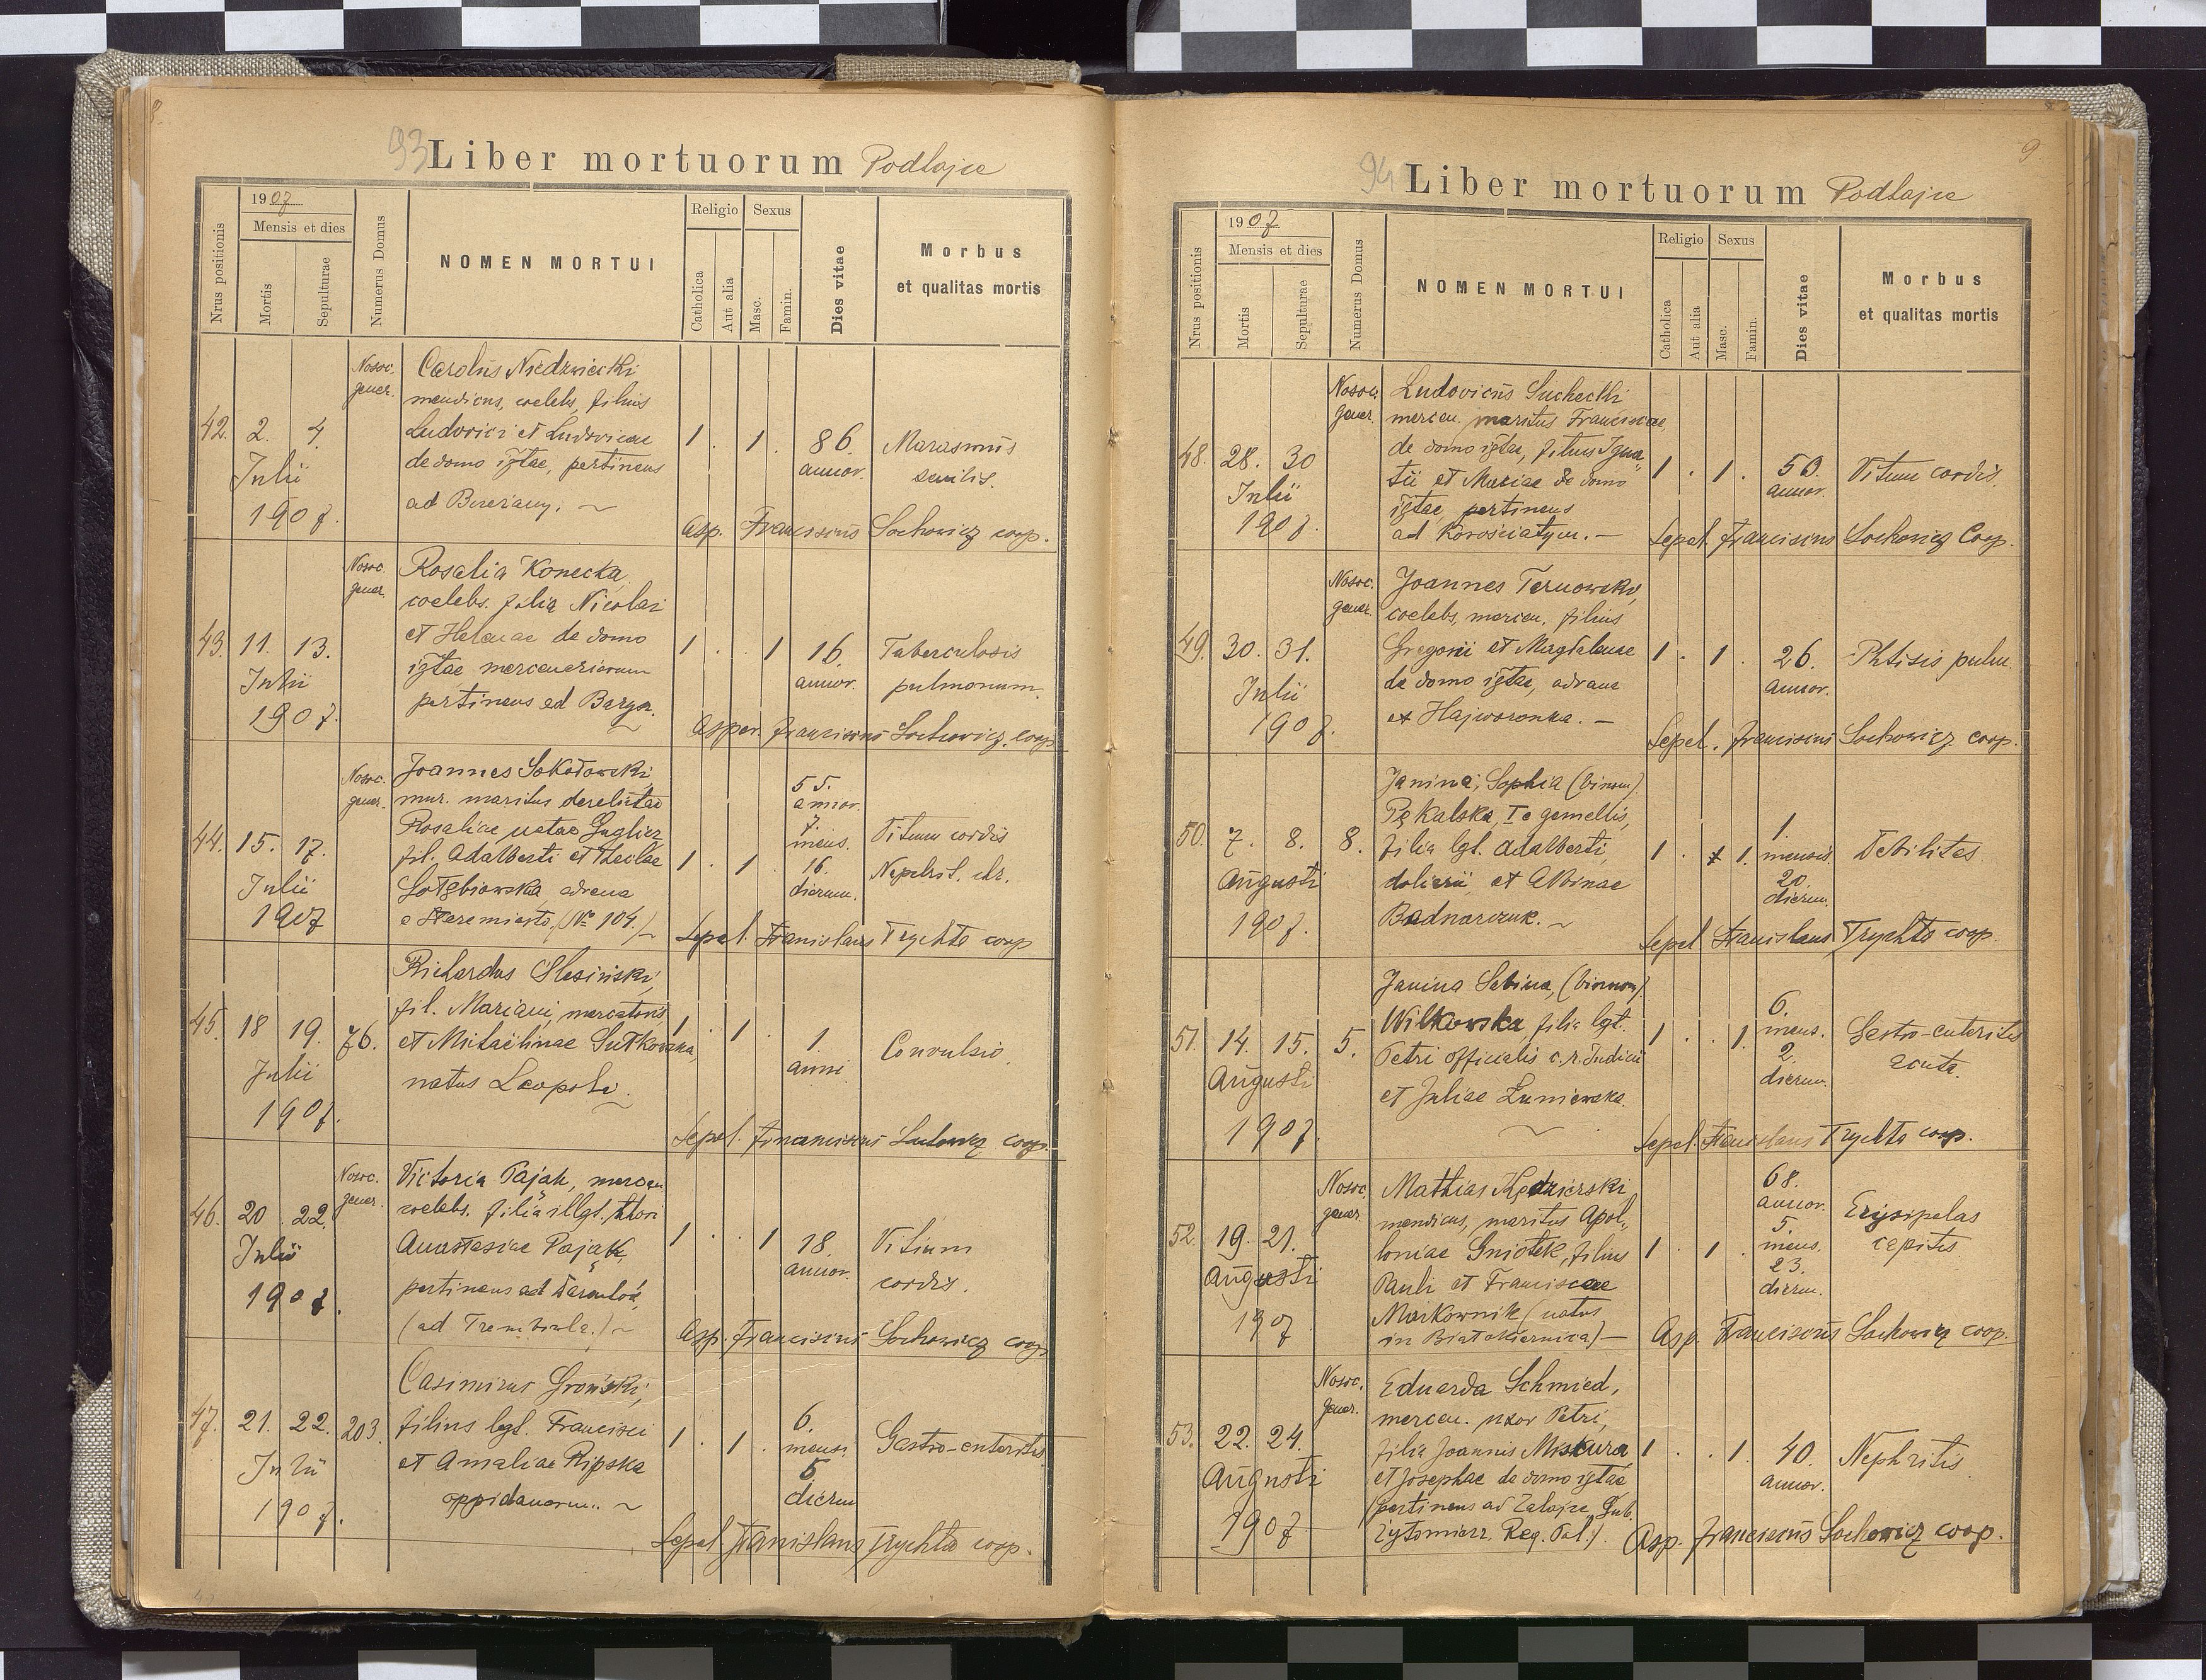 8
93 Liber mortuorum Podhajce
1907
Mensis et dies
Religio Sexus
Nrus positionis
Mortis
Sepulturae
Numerus Domus
NOMEN MORTUI
Catholica
Aut alia
Masc.
Famin.
Dies vitae
Morbus
et qualitas mortis
42. 2. 4. Julii 1907.
Nosoc. gener.
Carolus Niedzwiecki
mendicus, coelebs, filius
Ludovici et Ludovicae
de domo igtae, pertinens
ad Brzeżany.
1 . 1 . 86. annor.
Marasmus
senilis.
Asp. Franciscus Sochowicz coop.
43. 11. 13. Julii 1907.
Nosoc. gener.
Rosalia Konecka,
coelebs. filia Nicolai
et Helenae de domo
igtae mercenariorum
pertinens ad Barysz.
1 . . 1 16. annor.
Tuberculosis
pulmonum.
Asper. Franciscus Sochowicz coop
44. 15. 17. Julii 1907
Nosoc. gener.
Joannes Sokołowski,
mur. maritus derelictae
Rosaliae natae Guglicz
fil. Adalberti et Theclae
Gołębiowska, advena
e Staremiasto, (No 104.)
1 . 1 . 55. annor. 7. mens. 16. dierum.
Vitium cordis
Nephrit. chr.
Sepel. Stanislaus Trychta coop
45. 18 19. Julii 1907.
76.
Richardus Ślesiński,
fil. Mariani, mercatoris
et Michaelinae Sutkowska,
natus Leopoli.
1 . 1 . 1 anni
Convulsio.
Sepel. Franciscus Sochowicz coop.
46. 20 22. Julii 1907.
Nosoc. gener.
Victoria Pająk, mercen.
coelebs. filia illgt. thori
Anastasiae Pająk,
pertinens ad
(ad Trembowla.)
1 . . 1 18. annor.
Vitium
cordis.
Asp. Franciscus Sochowicz coop
47. 21. 22. Julii 1907.
203.
Casimirus Groński,
filius lgt. Francisci
et Amaliae Ripska
oppidanorum.
1 . 1 . 6. mens. 5. dierum
Gastro-enteritis
Sepel Stanislaus Trychta coop.
9
94 Liber mortuorum Podhajce
1907
Mensis et dies
Religio Sexus
Nrus positionis
Mortis
Sepulturae
Numerus Domus
NOMEN MORTUI
Catholica
Aut alia
Masc.
Famin.
Dies vitae
Morbus
et qualitas mortis
48. 28. 30 Julii 1907.
Nosoc. gener.
Ludovicus Suchecki
mercen. maritus Franciscae,
de domo igtae, filius Igna„
tii et Mariae de domo
igtae, pertinens
ad Korościatyn.
1 . 1 . 50. annor.
Vitium cordis.
Sepel. Franciscus Sochowicz Coop.
49. 30. 31. Julii 1907.
Nosoc. gener.
Joannes Ternowsky,
coelebs, mercen. filius
Gregorii et Magdalenae
de domo igtae, advena
ex Hajworonka.
1 . 1 . 26. annor.
Phtisis pulm.
Sepel. Franciscus Sochowicz coop.
50. 7. 8. Augusti 1907.
8.
Janina, Sophia (binom).
Pękalska, Ie gemellis,
filia lgt. Adalberti,
doliarii, et Albinae
Bednarczuk.
1 . 1. 1. mensis 20. dierum.
Debilitas
Sepel Stanislaus Trychta coop.
51. 14. 15. Augusti 1907.
5.
Janina Sabina, (binnom).
Wilkowska, filia lgt.
Petri officialis c. r. Judicii
et Juliae Łuniewska.
1 . . 1. 6. mens. 2. dierum.
Gastro-enteritis
acuta.
Sepel. Stanislaus Trychta coop.
52. 19. 21. Augusti 1907
Nosoc. gener.
Mathias Kędzierski
mendicus, maritus Apol„
loniae Gniotek, filius
Pauli et Franciscae
Markownik (natus
in Białokiernica)
1 . 1 . 68. annor. 5. mens. 23. dierum.
Erysipelas
capitis
Asp. Franciscus Sochowicz coop.
53. 22. 24. Augusti 1907
Nosoc. gener.
Eduarda Schmied,
mercen. uxor Petri,
filia Joannis Miskura,
et Josephae de domo igtae
(pertinens ad Zalojce, Gub.
Żytomierz. Reg. Pol.).
1 . . 1. 40. annor.
Nephritis
Asp. Franciscus Sochowicz coop.